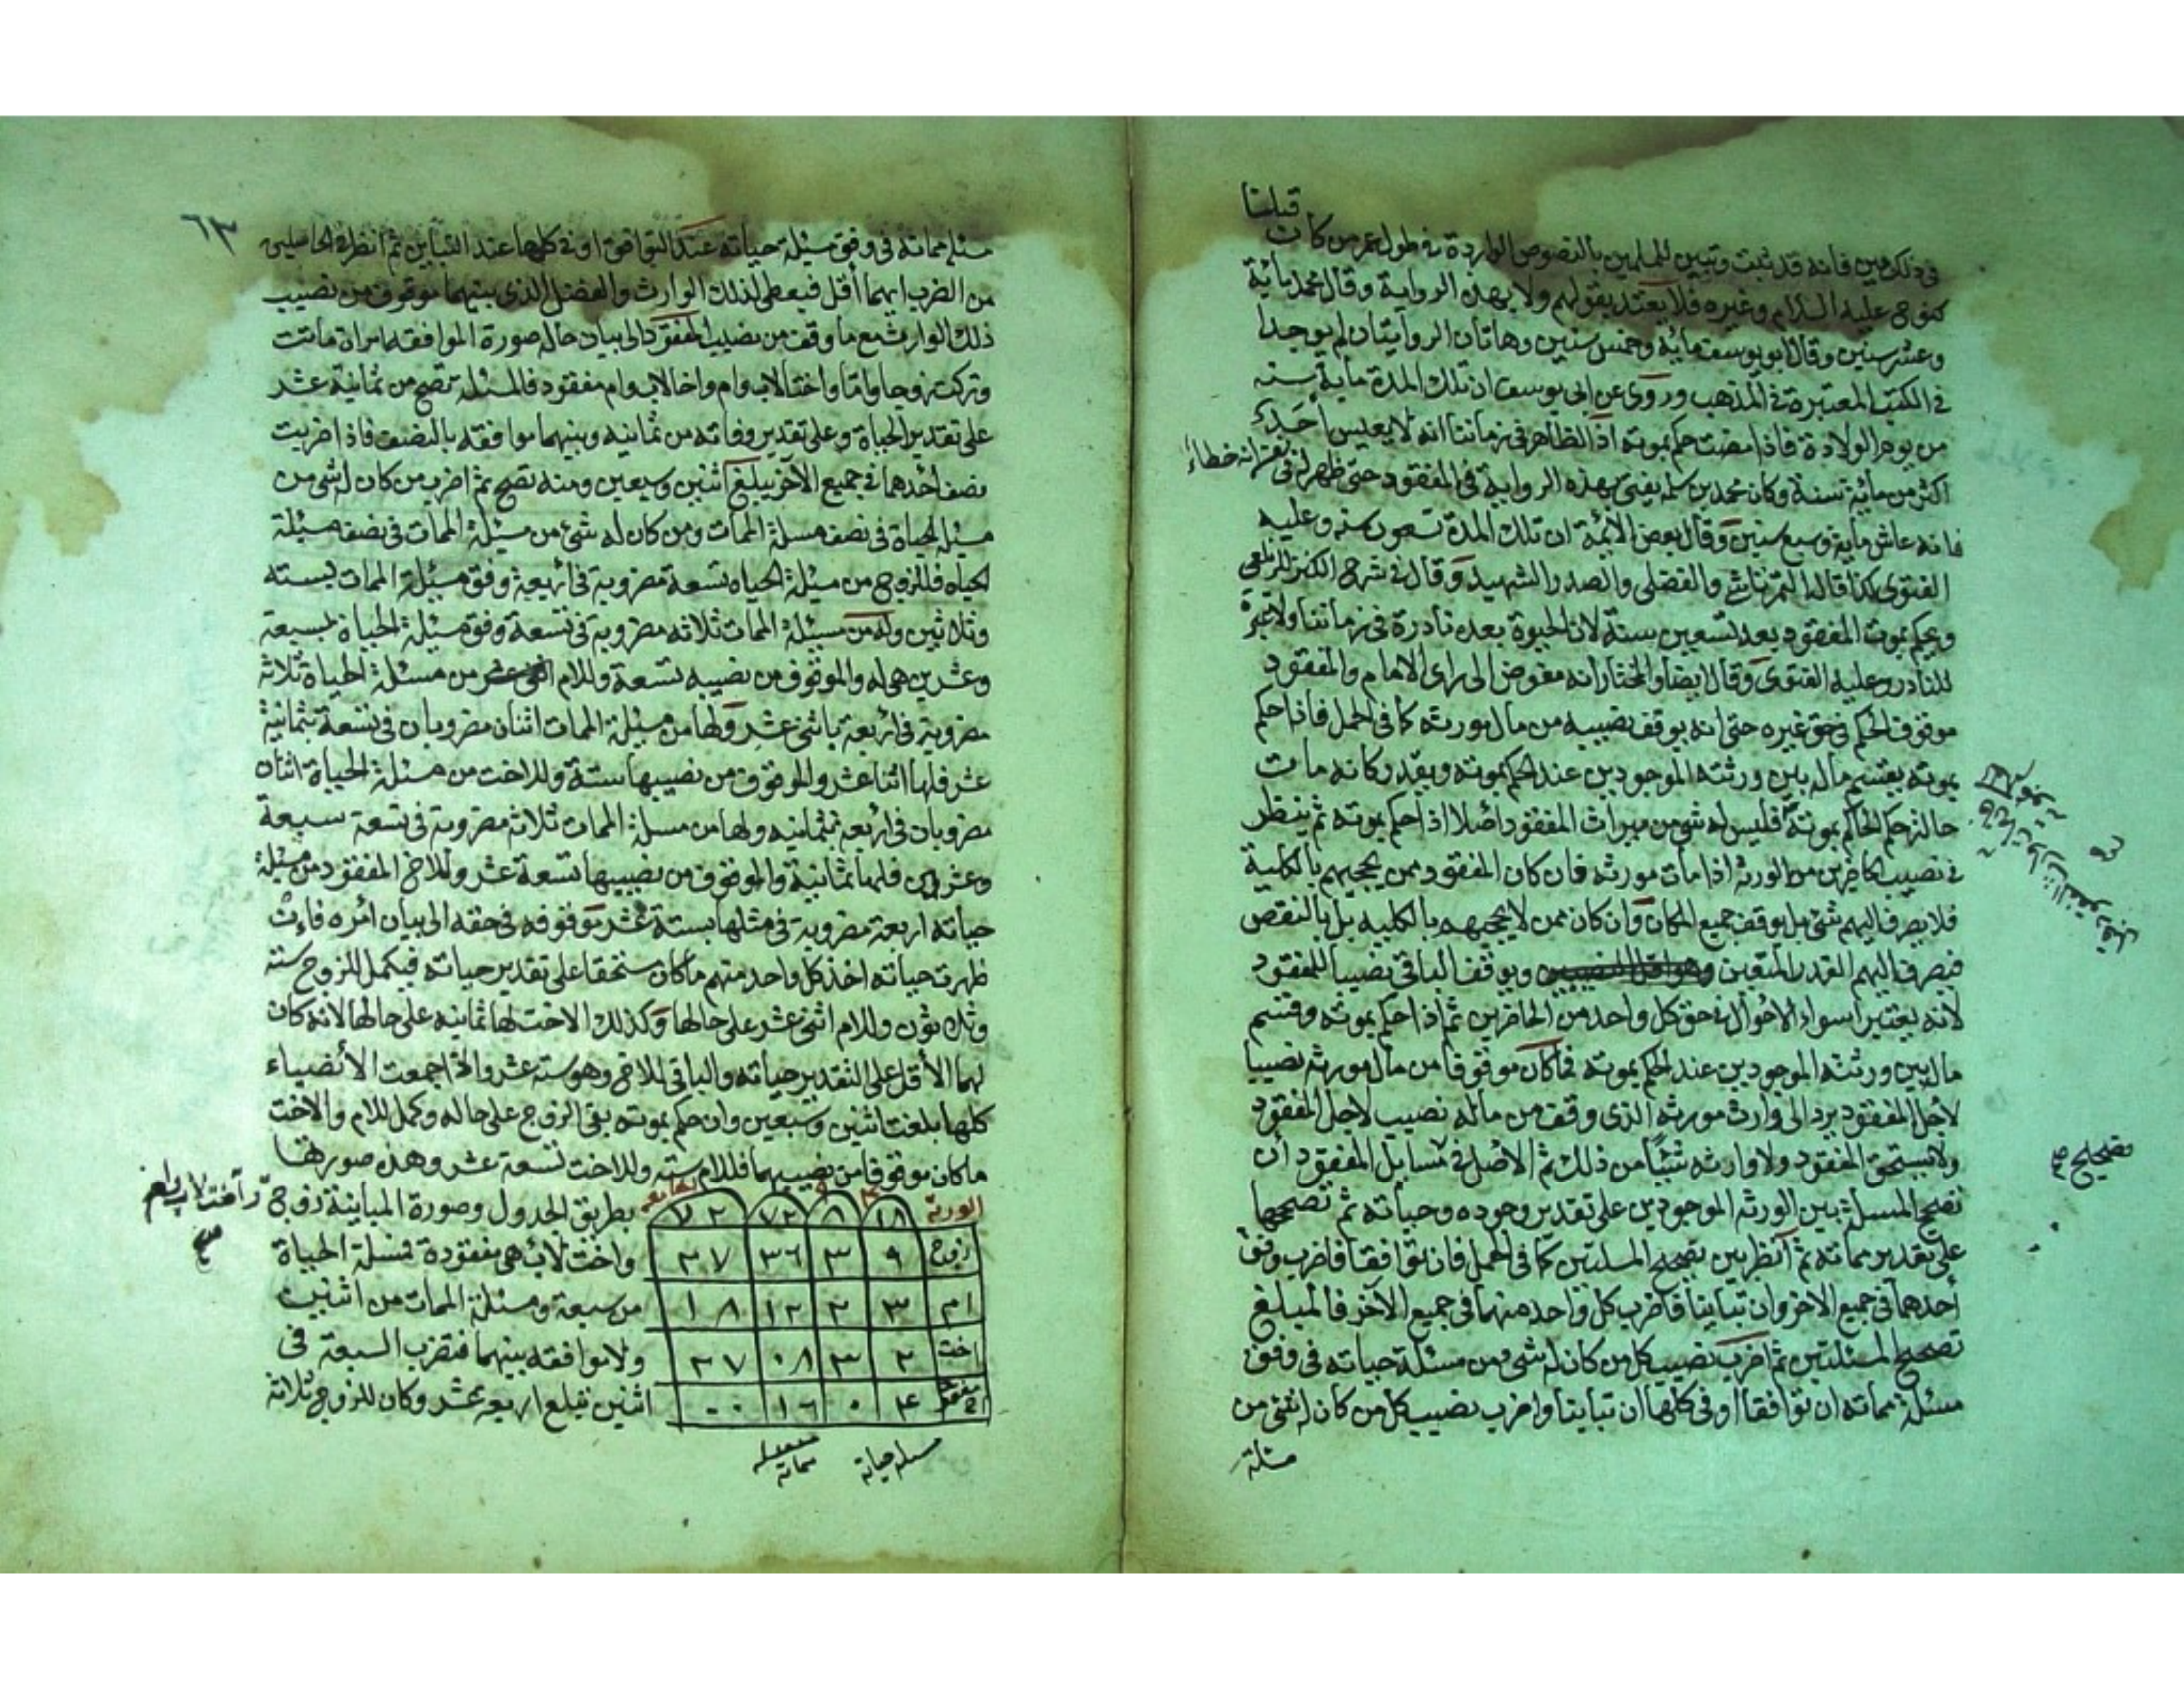 قبلنا
في ذلك من فانه قد ثبت وتبين للمسلمين بالنصوص الواردة في طول عمر من كان
كنوح عليه السلام وغيره فلا يعتد بقولهم ولا بهذه الرواية وقال محمد مائة
وعشر سنين وقال ابو يوسف مائة وخمس سنين وهاتان الروايتان لم يوجدا
في الكتب المعتبرة في المذهب وروى عن ابى يوسف ان تلك المدة مائة سنه
من يوم الولادة فاذا مضت حكم بموته اذ الظاهر في زماننا انه لا يعيش احد
اكثر من مائة سنة وكان محمد بن سلمه يفتى بهذه الرواية في المفقود حتى ظهر له في نفسه انه خطاء
فانه عاش مائة وسبع سنين وقال بعض الائمة ان تلك المدة تسعون سنه وعليه
الفتوى كذا قاله التمرتاشي والفضلى والصدر الشهيد وقال في شرح الكنز للزيلعى
ويحكم بموت المفقود بعد تسعين سنة لان الحيوة بعده نادرة في زماننا ولا عبرة
للنادر وعليه الفتوى وقال ايضا والمختار انه مفوض الى راى الامام والمفقود
موقوف الحكم في حق غيره حتى انه يوقف نصيبه من مال مورثه كما في الحمل فاذا حكم
بموته يقسم ماله بين ورثته الموجودين عند الحكم بموته ويقدر كانه مات
حالة حكم الحاكم بموته فليس له شئ من ميراث المفقود اصلا اذا حكم بموته ثم ينظر
في نصيب الحاضرين من الورثه اذا مات مورثه فان كان المفقود ممن يحجبهم بالكلية
فلا يصرف اليهم شئ بل يوقف جميع المكان وان كان ممن لا يحجبهم بالكليه بل بالنقص
فيصرف اليهم القدر المتيقن ويوقف الباقي نصيبا للمفقود
لانه يعتبر اسواء الاحوال في حق كل واحد من الحاضرين ثم اذا حكم بموته وقسم
ماله بين ورثته الموجودين عند الحكم بموته فما كان موقوفا من مال مورثه نصيبا
لاجل المفقود يرد الى وارث مورثه الذى وقف من ماله نصيب لاجل المفقود
ولا يستحق المفقود ولا وارثه شيئا من ذلك ثم الاصل في مسايل المفقود ان
تصحح المسئلة بين الورثه الموجودين على تقدير وجوده وحياته ثم تصححها
على تقدير مماته ثم انظر بين تصحيح المسئلتين كما في الحمل فان توافقا فاضرب وفق
احدهما في جميع الاخر وان تباينا فاضرب كل واحد منهما في جميع الاخر فالمبلغ
تصحيح المسئلتين ثم اضرب نصيب كل من كان له شئ من مسئلة حياته في وفق
مسئلة مماته ان توافقا او في كلها ان تباينا واضرب نصيب كل من كان له شئ من
مسئلة
تصحيح
٦٣
مسئلة مماته في وفق مسئلة حياته عند التوافق او في كلها عند التباين ثم انظر في الحاصلين
من الضرب ايهما اقل فيعطى لذلك الوارث والفضل الذى بينهما موقوف من نصيب
ذلك الوارث مع ما وقف من نصيب المفقود الى بيان حاله صورة الموافقه امراة ماتت
وتركت زوجا واما واختا لاب وام واخا لاب وام مفقود فالمسئله تصح من ثمانية عشر
على تقدير الحياة وعلى تقدير وفاته من ثمانيه وبينهما موافقه بالنصف فاذا ضربت
نصف احدهما في جميع الآخر يبلغ اثنين وسبعين ومنه تصح ثم اضرب من كان له شئ من
مسئلة الحياة في نصف مسئلة الممات ومن كان له شئ من مسئلة الممات في نصف مسئلة
الحياه فللزوج من مسئلة الحياه تسعة مضروبة في اربعة وفق مسئلة الممات بستة
وثلاثين وله من مسئلة الممات ثلاثه مضروبة في تسعة وفق مسئلة الحياة بسبعة
وعشرين هى له والموقوف من نصيبه تسعة وللام من مسئلة الحياة ثلاثة
مضروبة في اربعة باثنى عشر ولها من مسئلة الممات اثنان مضروبان في تسعة بثمانية
عشر فلها اثنا عشر والموقوف من نصيبها ستة وللاخت من مسئلة الحياة اثنان
مضروبان في اربعه بثمانيه ولها من مسئلة الممات ثلاثة مضروبة في تسعة سبعة
وعشرين فلها ثمانية والموقوف من نصيبها تسعة عشر وللاخ المفقود من مسئلة
حياته اربعة مضروبة في مثلها بستة عشر موقوفه في حقه الى بيان امره فان
ظهرت حياته اخذ كل واحد منهم ما كان مستحقا على تقدير حياته فيكمل للزوج ستة
وثلاثون وللام اثنى عشر على حالها وكذلك الاخت لها ثمانيه على حالها لانه كان
لهما الاقل على التقدير حياته والباقي للاخ وهو ستة عشر واذا جمعت الانصباء
كلها بلغت اثنين وسبعين وان حكم بموته بقى الزوج على حاله وكمل للام والاخت
ما كان موقوفا من نصيبهما فللام سته وللاخت تسعة عشر وهذه صورتها
بطريق الجدول وصورة المباينة زوج واخت لاب وام
واخت لاب هى مفقودة فمسئلة الحياة
من سبعة ومسئلة الممات من اثنين
ولا موافقه بينهما فتضرب السبعة في
اثنين فيبلغ اربعه عشر وكان للزوج ثلاثة
الورثه ١٨ ٨ ٧٢ ٧٢
زوج ٩ ٣ ٣٦ ٢٧
ام ٣ ٢ ١٢ ١٨
اخت ٢ ٣ ٠٨ ٢٧
مفقود اخ ٤ ٠ ١٦ ٠٠
مسئله حياته
مسئله مماته